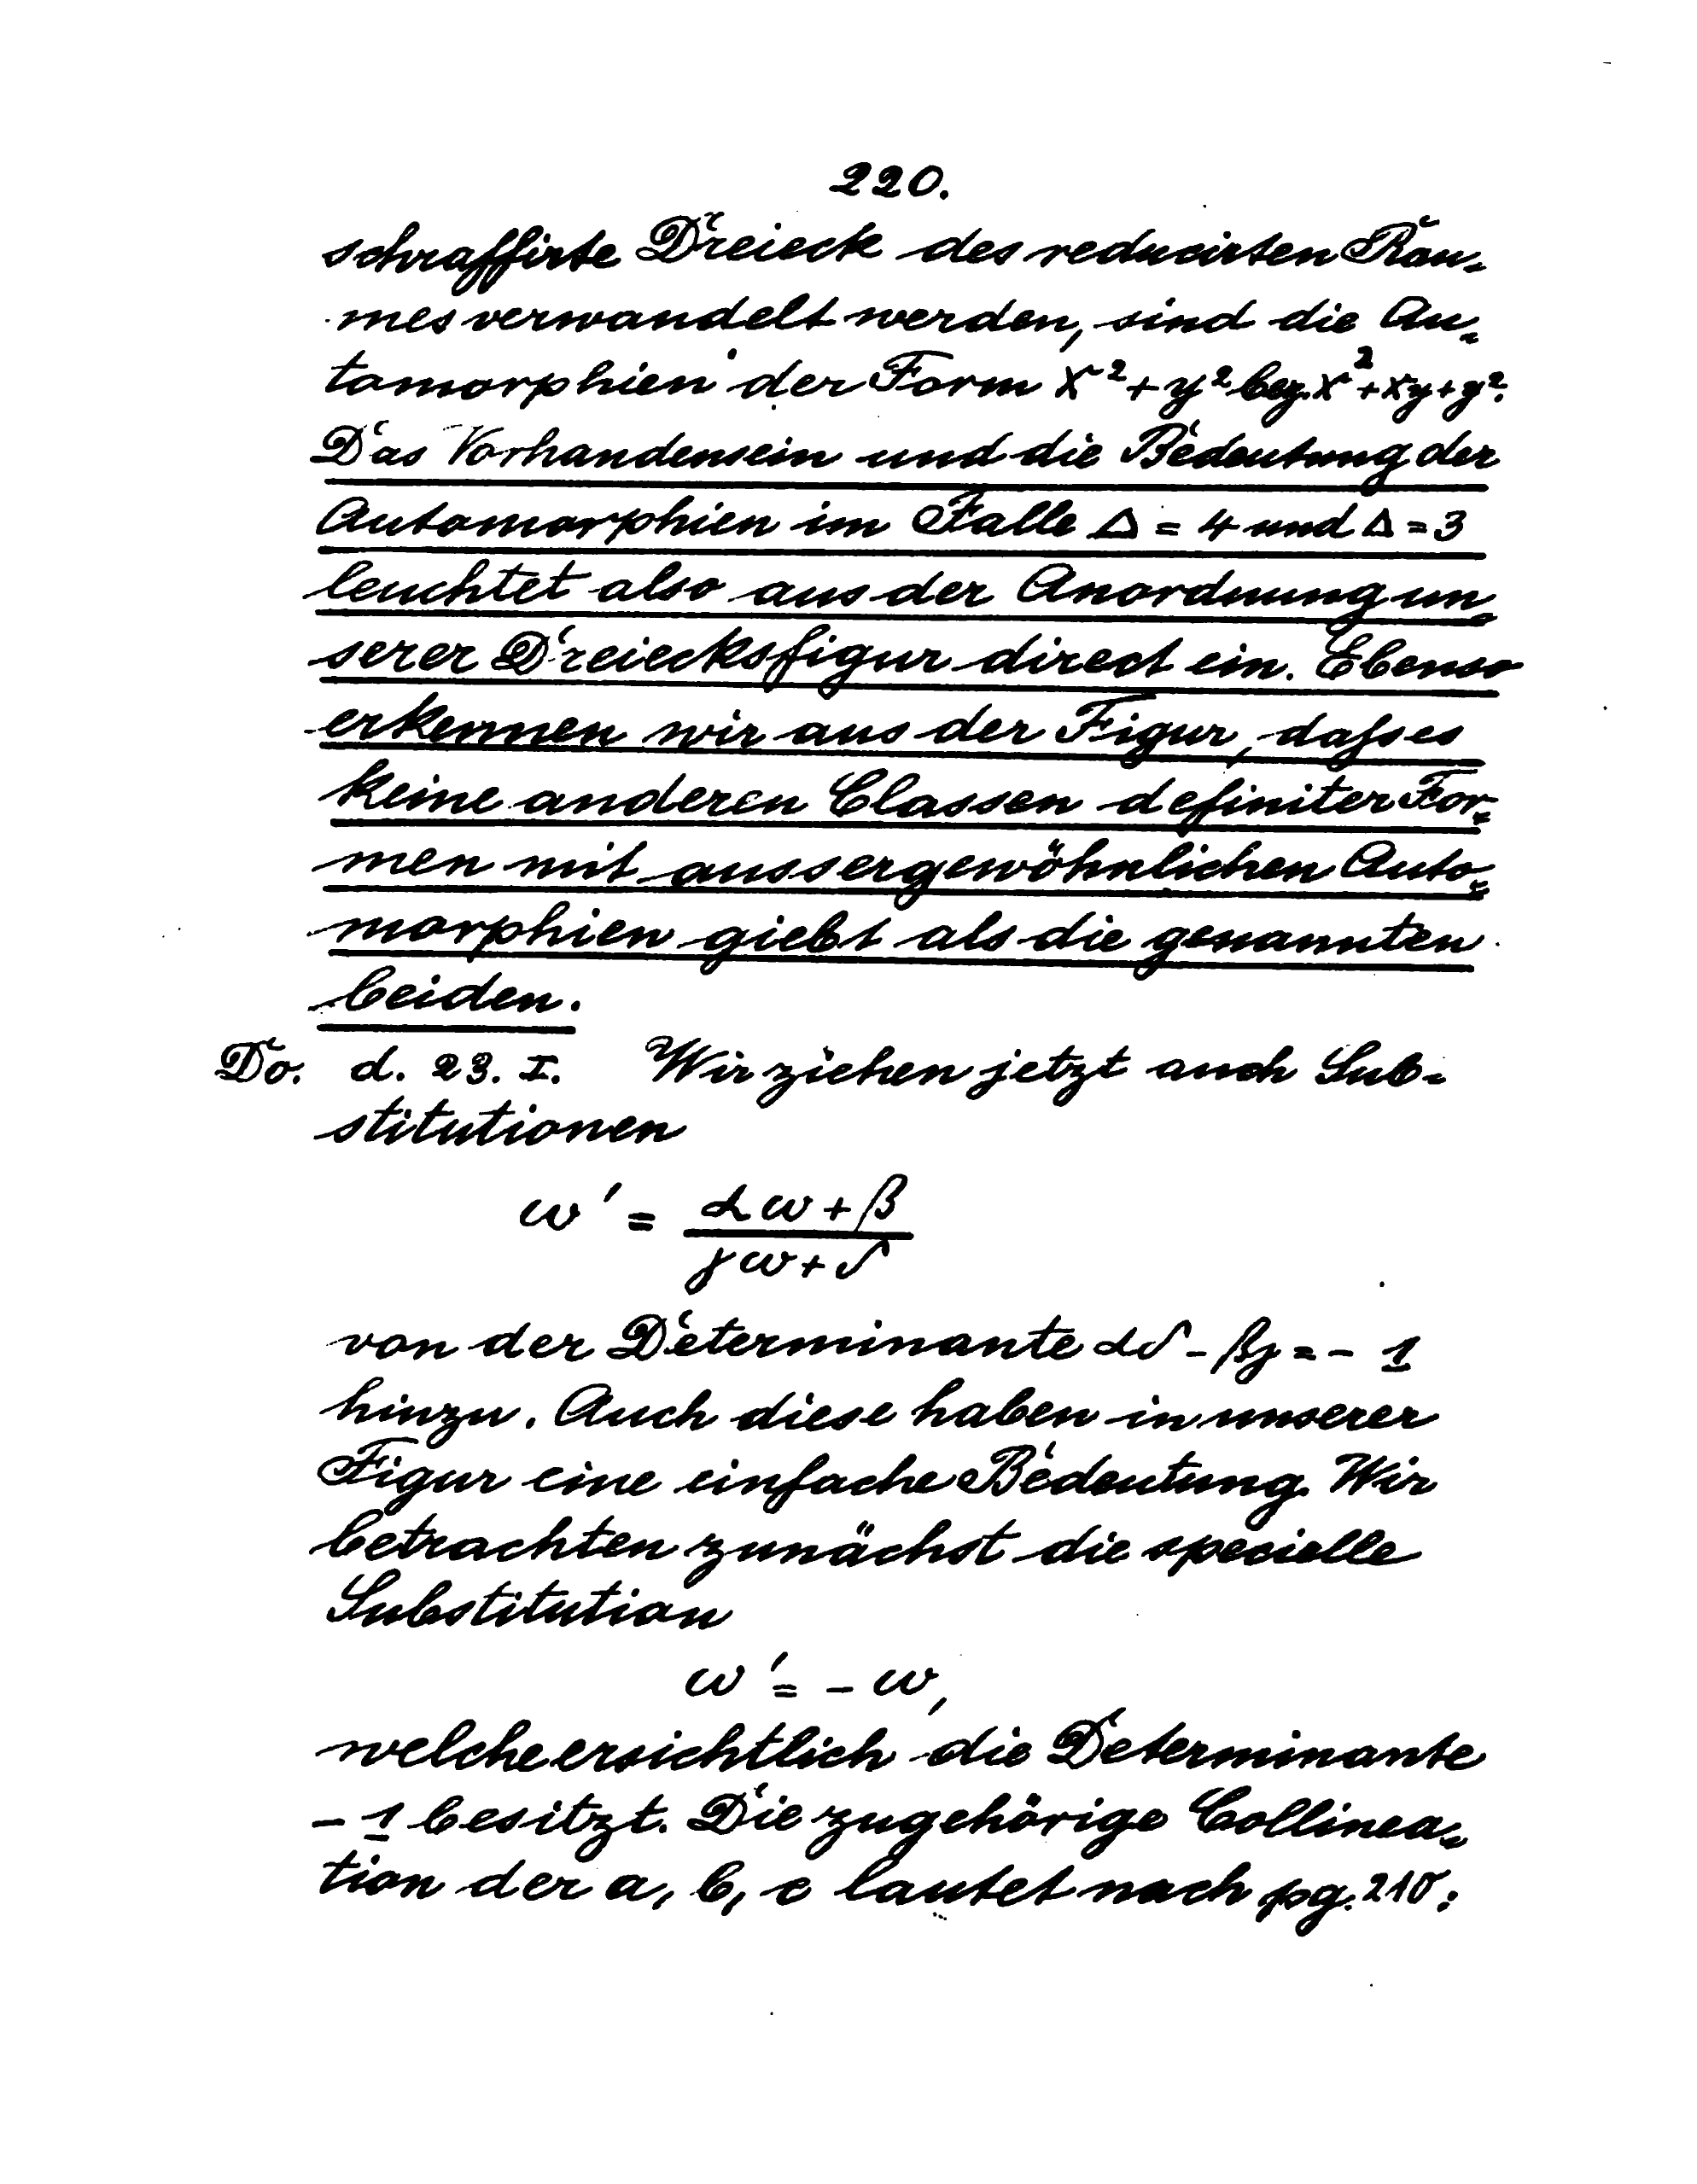 220.
schraffirte Dreieck des reducirten Rau-
mes verwandelt werden, sind die Au-
tomorphien der Form x² + y² bez. x² + xy + y².
Das Vorhandensein und die Bedeutung der
Automorphien im Falle Δ = 4 und Δ = 3
leuchtet also aus der Anordnung un-
serer Dreiecksfigur direct ein. Ebenso
erkennen wir aus der Figur, dass es
keine anderen Classen definiter For-
men mit aussergewöhnlichen Auto-
morphien giebt als die genannten
beiden.
Do. d. 23. I. Wir ziehen jetzt auch Sub-
stitutionen
ω' = (αω + β) / (γω + δ)
von der Determinante αδ - βγ = - 1
hinzu. Auch diese haben in unserer
Figur eine einfache Bedeutung. Wir
betrachten zunächst die specielle
Substitution
ω' = - ω,
welche ersichtlich die Determinante
- 1 besitzt. Die zugehörige Collinea-
tion der a, b, c lautet nach pg. 210: